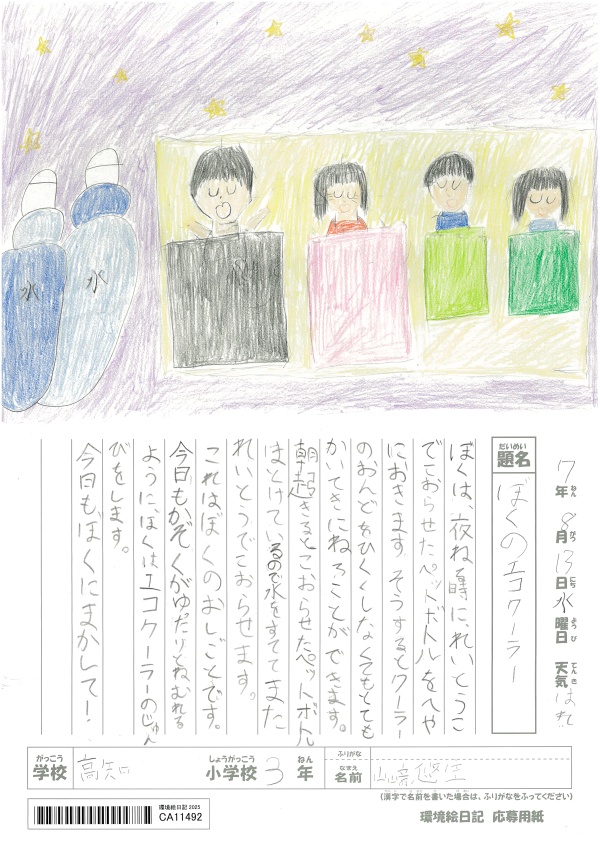 水
水
17年8月13日水曜日 天気はれ
ねん がつ にち ようび てんき
だいめい
題名
ぼくのエコクーラー
ぼくは、夜ね る時に、れいとうこ
でこおらせたペットボトルをへや
におきます。そうするとクーラー
のおんどをひくくしなくてもとても
かいてきにねることができます。
朝起きるとこおらせたペットボトル
はとけているので水をすててまた
れいとうでこおらせます。
これはぼくのおしごとです。
今日もかぞくがゆったりとねむれる
ように、ぼくはエコクーラーのじゅん
びをします。
今日もぼくにまかして!
がっこう
学校
高知
しょうがっこう
小学校
3
ねん
年
ふりがな
なまえ
名前
山崎悠生
(漢字で名前を書いた場合は、ふりがなをふってください)
環境絵日記 2025
CA11492
環境絵日記 応募用紙